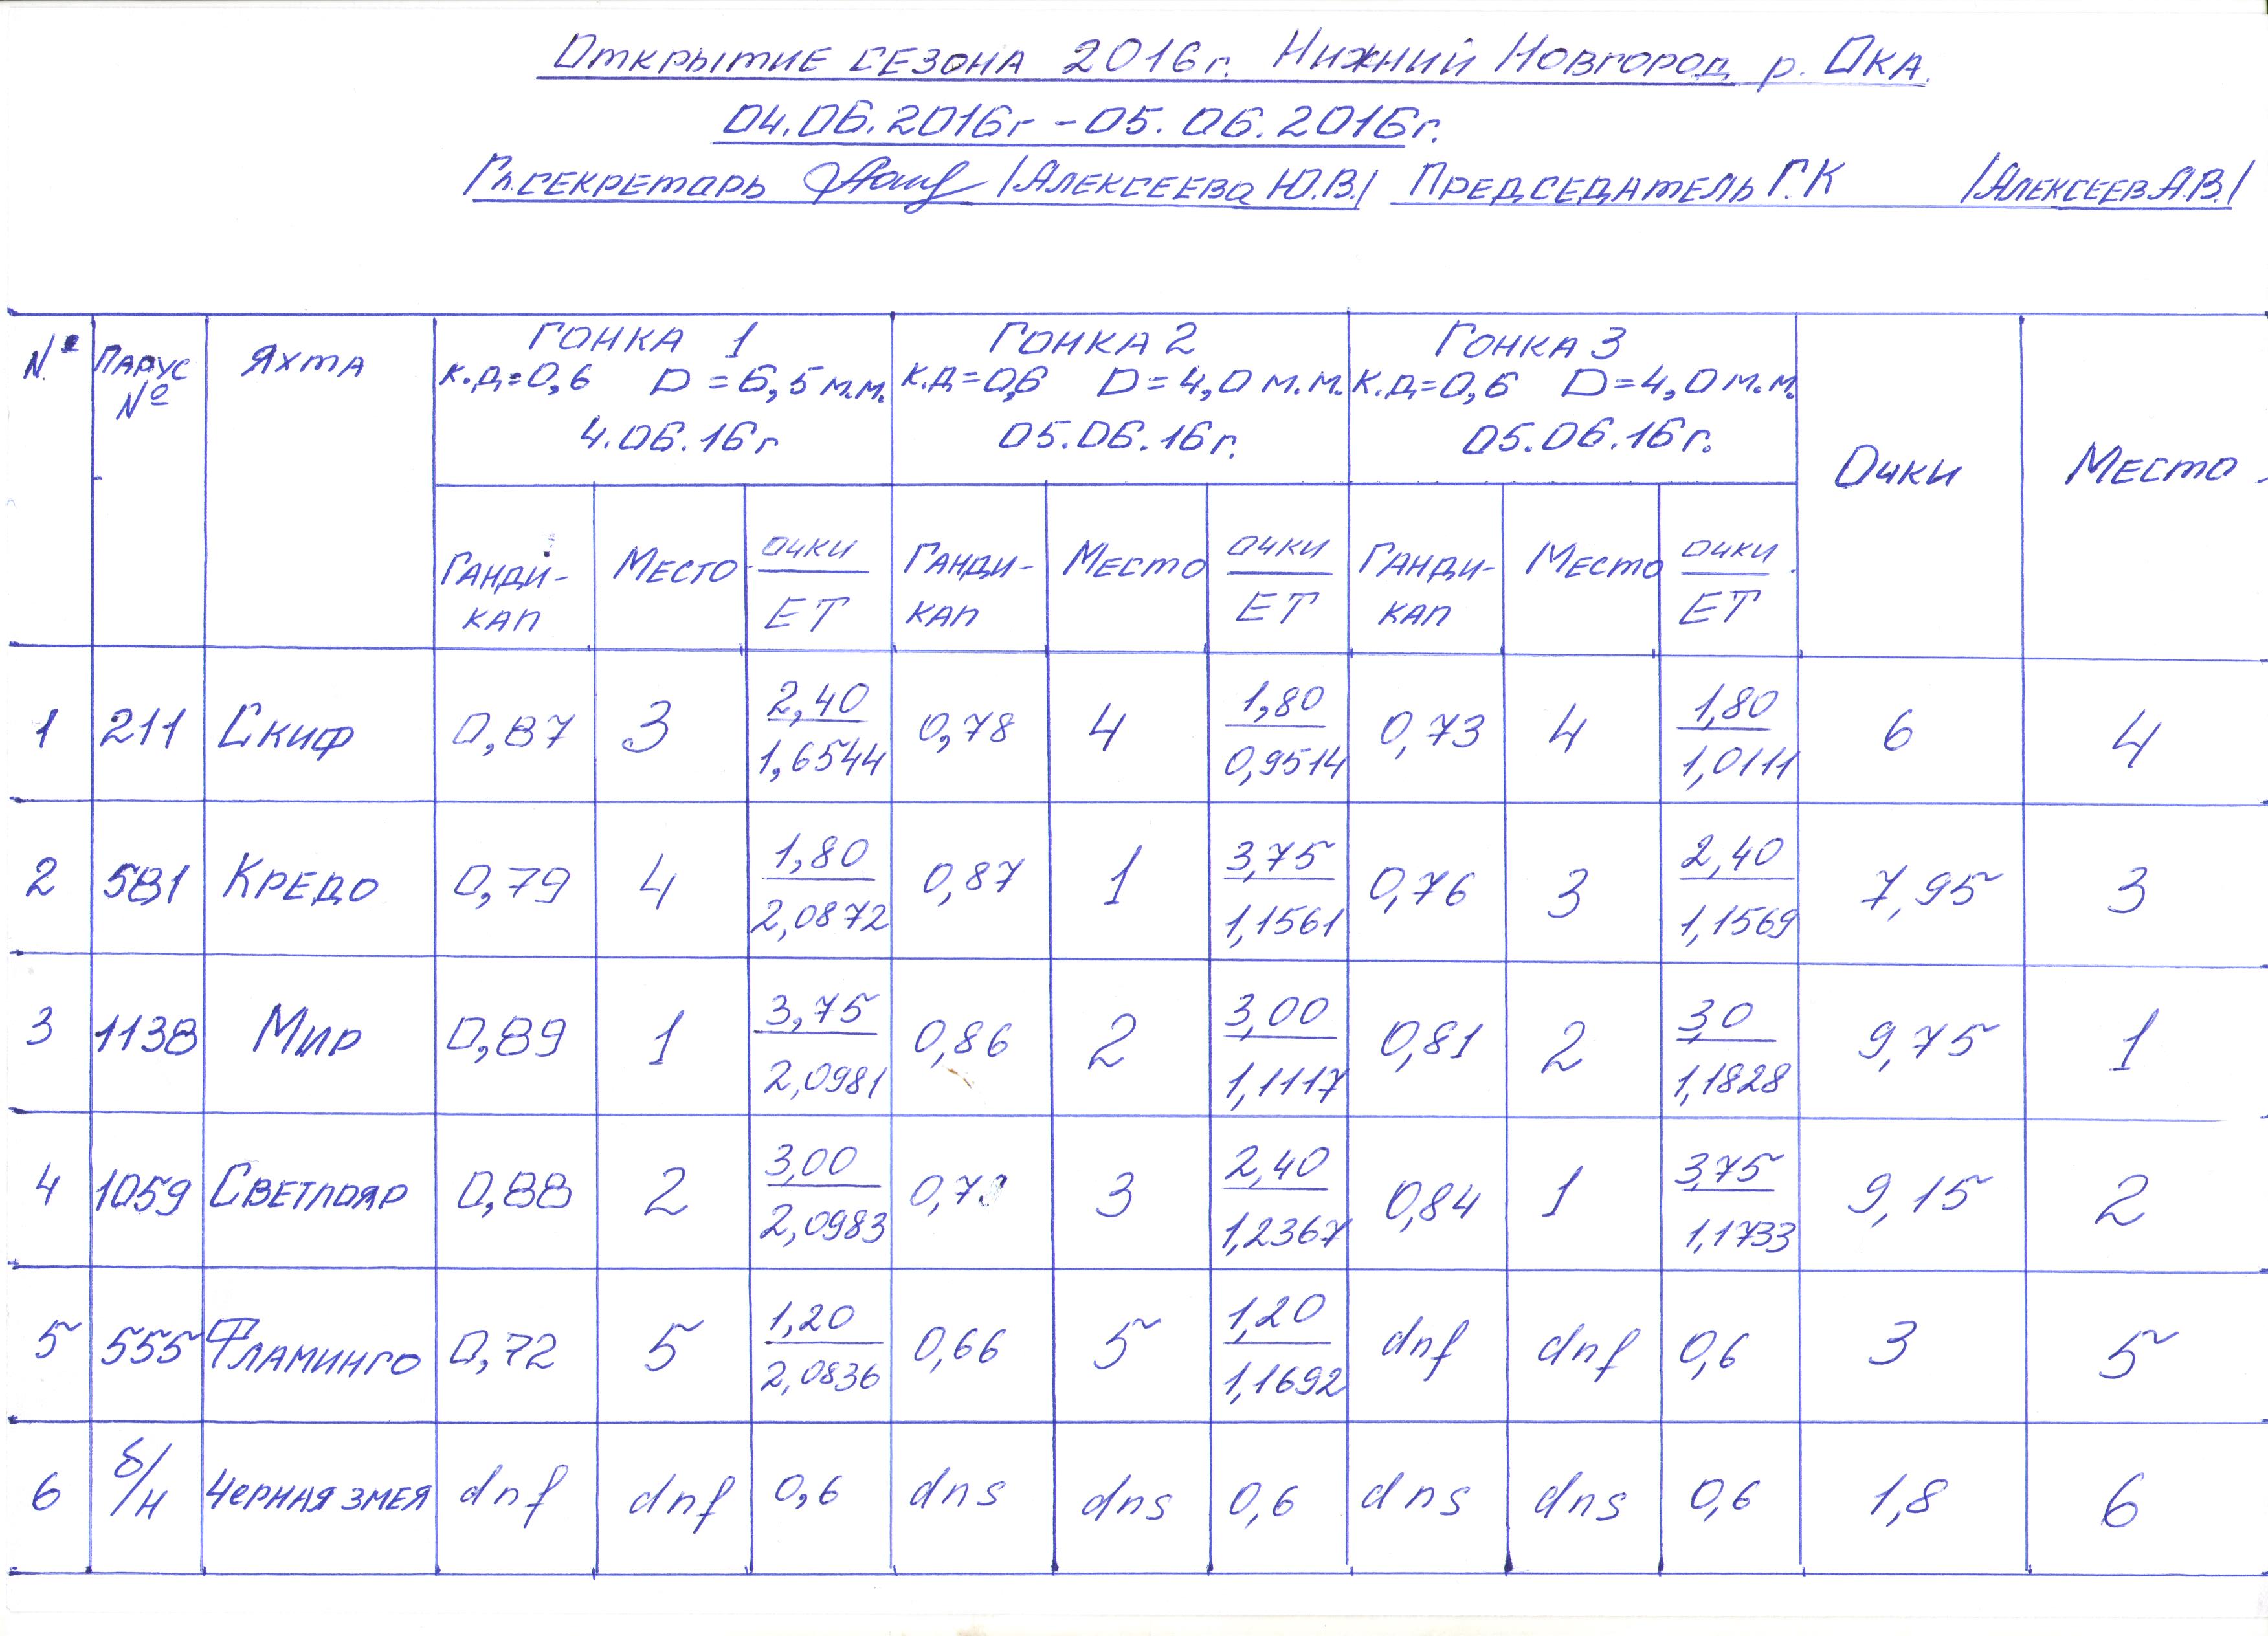 Открытие сезона 2016г. Нижний Новгород р. Ока.
04.06.2016г - 05.06.2016г.
Гл.секретарь /Алексеева Ю.В./ Председатель Г.К /Алексеев А.В./
№ Парус № Яхта Гонка 1 Гонка 2 Гонка 3 Очки Место
к.д=0,6 D=6,5 м.м. к.д=0,6 D=4,0 м.м. к.д=0,6 D=4,0 м.м.
4.06.16г 05.06.16г. 05.06.16г.
Ганди-кап Место очки/ЕТ Ганди-кап Место очки/ЕТ Ганди-кап Место очки/ЕТ
1 211 Скиф 0,87 3 2,40/1,6544 0,78 4 1,80/0,9514 0,73 4 1,80/1,0111 6 4
2 581 Кредо 0,79 4 1,80/2,0872 0,87 1 3,75/1,1561 0,76 3 2,40/1,1569 7,95 3
3 1138 Мир 0,89 1 3,75/2,0981 0,86 2 3,00/1,1117 0,81 2 3,0/1,1828 9,75 1
4 1059 Светлояр 0,88 2 3,00/2,0983 3 2,40/1,2367 0,84 1 3,75/1,1733 9,15 2
5 555 Фламинго 0,72 5 1,20/2,0836 0,66 5 1,20/1,1692 dnf dnf 0,6 3 5
6 б/н Черная змея dnf dnf 0,6 dns dns 0,6 dns dns 0,6 1,8 6